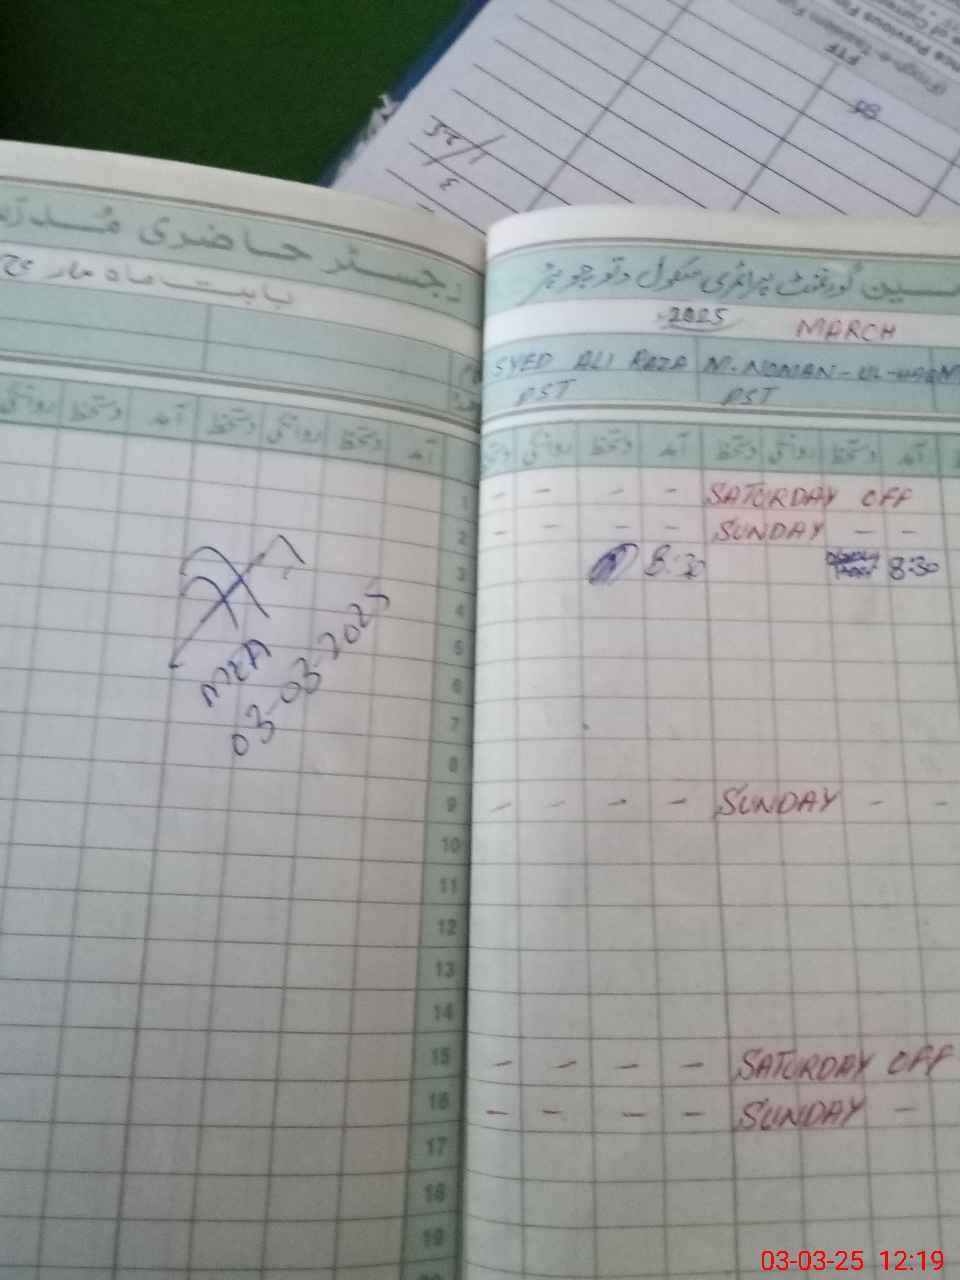 رجسٹر حاضری مدرّسین گورنمنٹ پرائمری سکول
بابت ماہ مارچ 2025 MARCH
SYED ALI RAZA
PST
M. NOMAN-UL-HAQ
PST
آمد دستخط روانگی دستخط آمد دستخط روانگی
آمد دستخط روانگی دستخط آمد دستخط روانگی
1 - - - - SATURDAY OFF
2 - - - - SUNDAY - -
3 8:30 8:30
4
5
6
7
8
9 - - - - SUNDAY - -
10
11
12
13
14
15 - - - - SATURDAY OFF
16 - - - - SUNDAY -
17
18
19
20
MEA
03-03-2025
FTF
03-03-25 12:19